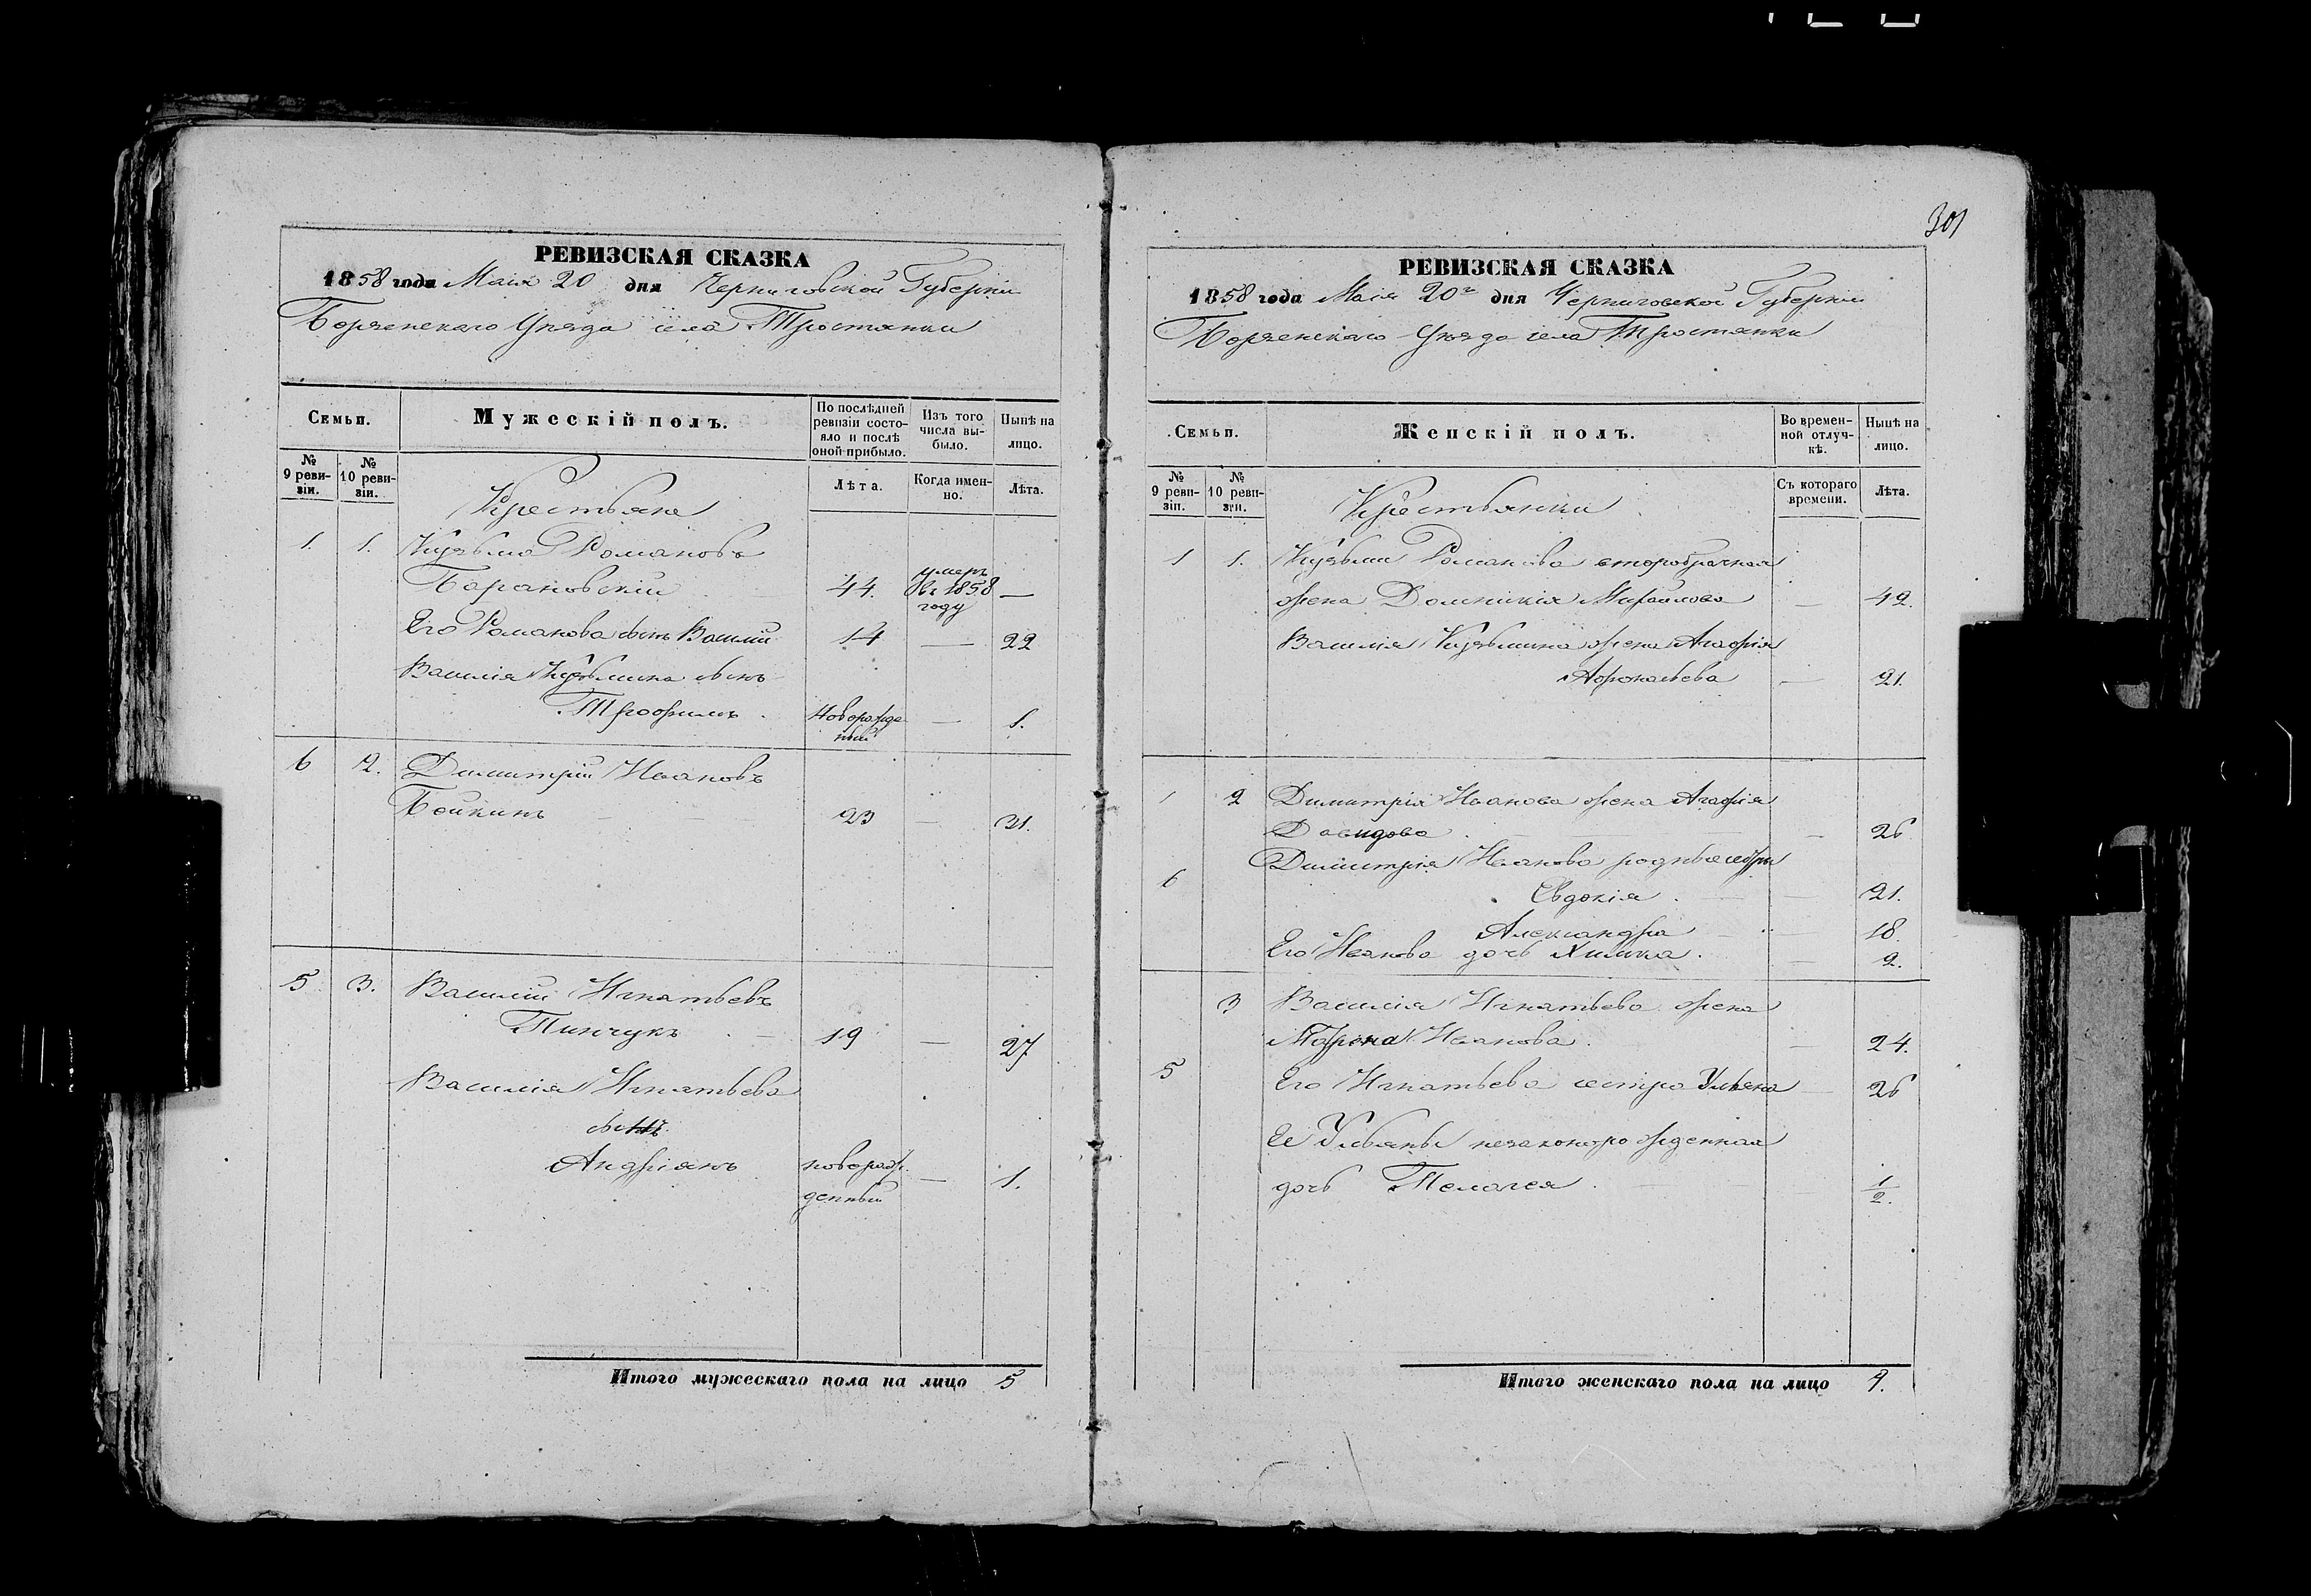 301
РЕВИЗСКАЯ СКАЗКА
1858 года Маія 20 дня Черниговской Губерніи
Борзенскаго Уѣзда села Тростянки
Семьи.
Мужескій полъ.
По послѣдней ревизіи состояло и послѣ оной прибыло.
Изъ того числа выбыло.
Нынѣ на лицо.
№ 9 ревизіи.
№ 10 ревизіи.
Лѣта.
Когда именно.
Лѣта.
Крестьяне
1. 1. Кузьма Романовъ
Барановскій 44. умеръ въ 1858 году —
Его Романова сынъ Василій 14 — 22
Василія Кузьмина сынъ
Трофимъ. Новорожденный — 1.
6 2. Димитрій Ивановъ
Бойкинъ 23 — 31.
5 3. Василій Игнатьевъ
Пинчукъ 19 — 27
Василія Игнатьева
сынъ
Андріянъ новорожденный — 1.
Итого мужескаго пола на лицо 5
РЕВИЗСКАЯ СКАЗКА
1858 года Маія 20 дня Черниговской Губерніи
Борзенскаго Уѣзда села Тростянки
Семьи.
Женскій полъ.
Во временной отлучкѣ.
Нынѣ на лицо.
№ 9 ревизіи.
№ 10 ревизіи.
Съ котораго времени.
Лѣта.
Крестьянки
1 1. Кузьми Романова второбрачная
жена Домникія Михайлова — 42.
Василія Кузьмина жена Агафія
— 21.
1 2 Димитрія Иванова жена Агафія
Давидова — 26
Димитрія Иванова родныя сестры
6 Евдокія — 21.
Александра — 18.
Его Иванова дочь — 2.
3 Василія Игнатьева жена
Иванова. — 24.
5 Его Игнатьева сестра Ульяна — 26
Ее Ульяны незаконорожденная
дочь Пелагея. — 1/2.
Итого женскаго пола на лицо 9.